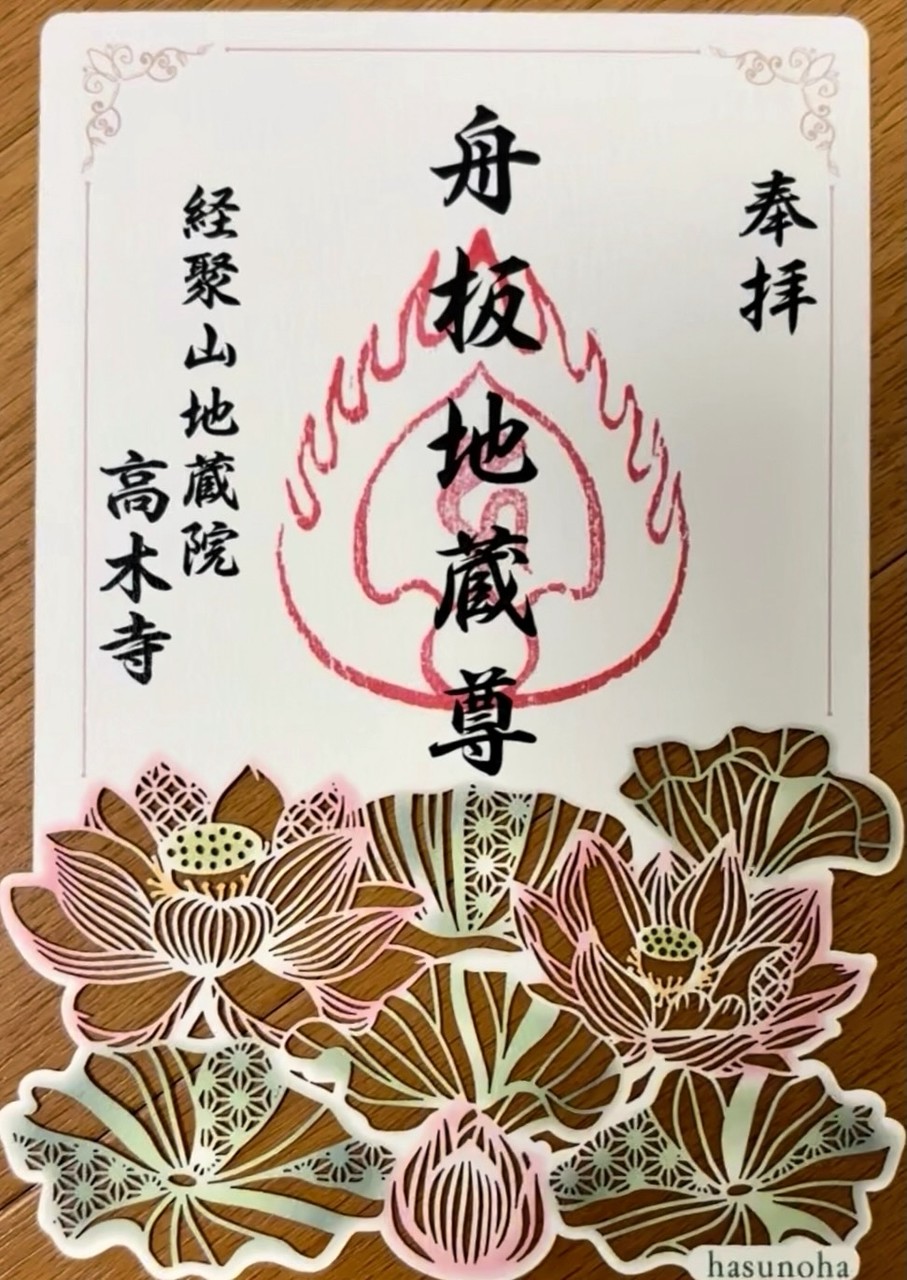 奉拝
舟板地蔵尊
経聚山地蔵院
高木寺
hasunoha